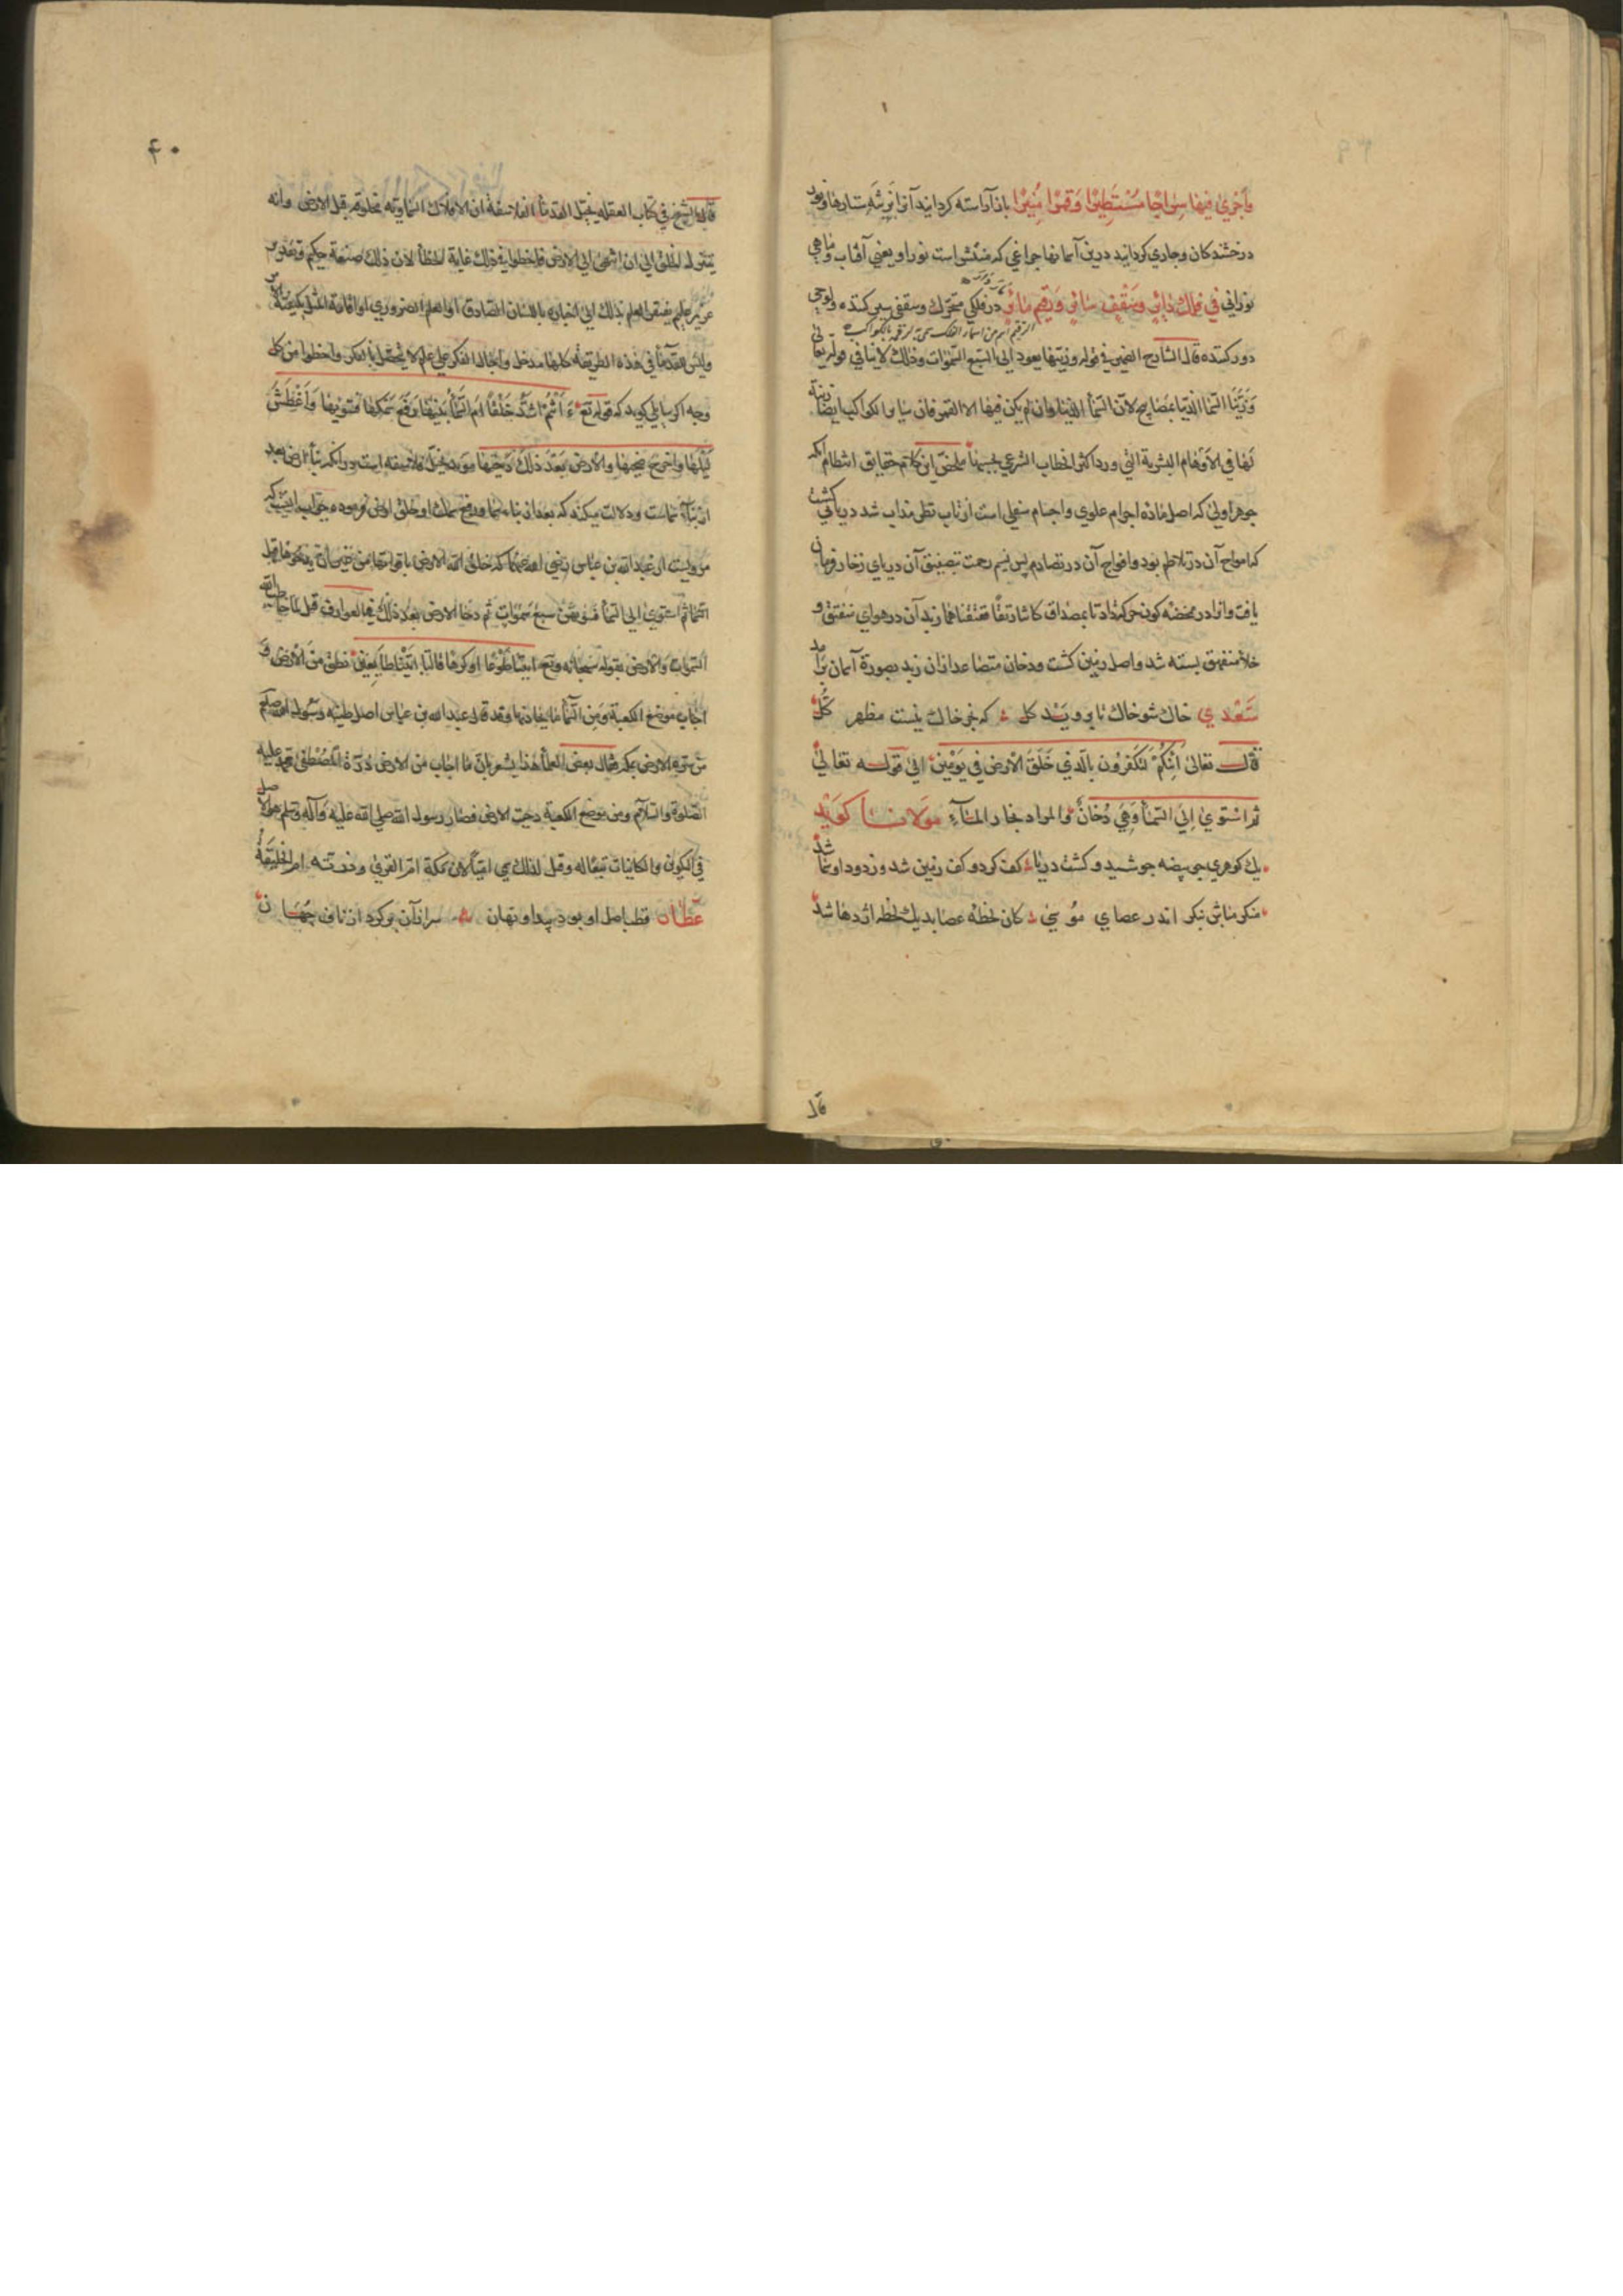 وأجرى فيها سراجا مستطيرا وقمرا منيرا باز آراسته كردانيد آنرا بزينة ستارها ونور
درخشندكان وجاري كردانيد درين آسمانها چراغي كه منتشر است نور او يعني آفتاب وماهي
نوراني في فلك دائر وسقف سائر ورقيم مائر در فلكي متحرك وسقفي سير كننده ولوحي
الرقيم اسم من اسماء الفلك سمي به لرقمه بالكواكب
دور كننده قال الشارح الضمير في قوله وزينها يعود الى السبع السموات وذلك لا ينافي قوله تعالى
وزينا السما الدنيا بمصابيح لان السما الدنيا وان لم يكن فيها الا القمر فان سائر الكواكب ايضا زينة
لها في الاوهام البشرية التي ورد اكثر الخطاب الشرعي بحسبها ملخص اين كلام حقايق انتظام آنكه
جوهر اولى كه اصل ماده اجرام علوي واجسام سفلي است از تاب تطى مذاب شد دريا كشت
كه امواج آن در تلاطم بود وافواج آن در تصادم پس نسيم رحمت آن درياى زخار فرمان
يافت واو را در مخضه كون حركت داد تا بمصداق كانتا رتقا ففتقناهما زبد آن در هواى منفتق و
خلأ منفهق بسته شد واصل زمين كشت ودخان متصاعد از ان زبد بصورة آسمان بر آمد
سعدي خاك شو خاك تا برويد كل كه بجز خاك نيست مظهر كل
قال تعالى ائنكم لتكفرون بالذي خلق الارض في يومين الى قوله تعالى
ثم استوى الى السمأ وهي دخان والمراد بخار المآء مولانا كويد
يك كوهري چو بيضه جوشيد وكشت دريا كف كرد وكف زمين شد وز دود او سما شد
منكر مباش بنكر اندر عصاي موسي كان لحظه عصا بد يك لحظه اژدها شد
قا
٤٠
قال الشيخ في كتاب العقله يخيل القدمأ الفلاسفة ان الافلاك السماويه مخلوقة قبل الارض وانه
يتنزل الخلق الى ان انتهى الى الارض فاخطوا في ذلك غاية الخطأ لان ذلك صنعة حكيم وتقدير
عزيز عليم يفتقر العلم بذلك الى اخباره باللسان الصادق او العلم الضروري او اقامة المثل بكيفية الامر
وليس للقدمأ في هذه الطريقة كلها مدخل واجالوا الفكر على علم لا يتحصل بالفكر واخطوا من كل
وجه اكر سايلي كويد كه قوله تع ءانتم اشد خلقا ام السمأ بنيها رفع سمكها فسويها واغطش
ليلها واخرج ضحيها والارض بعد ذلك دحيها مويد تخيل فلاسفه است در آنكه بنأ ارض بعد
از بنآء سماست ودلالت ميكند كه بعد از بناء سما ورفع سمك او خلق ارض فرموده جواب اينست كه
مرويست از عبد الله بن عباس رضي الله عنهما كه خلق الله الارض باقواتها من غير ان يدحوها قبل
السما ثم استوى الى السمأ فسويهن سبع سموات ثم دحا الارض بعد ذلك في العوارف قيل لما خاطب الله
السموات والارض بقوله سبحانه وتع ائتيا طوعا او كرها قالتا اتينا طايعين نطق من الارض و
اجاب موضع الكعبة ومن السمأ ما يحاذيها وقد قال عبد الله بن عباس اصل طينة رسول الله صلعم
من سرة الارض بمكة فقال بعض العلمأ هذا يشعر بان ما اجاب من الارض درة المصطفى محمد عليه
الصلوة والسلام ومن موضع الكعبة دحيت الارض فصار رسول الله صلى الله عليه وآله وسلم هو الاصل
في التكوين والكاينات تبعا له وقيل لذلك سمي اميا لان مكة ام القرى وذرته ام الخليقة
عطار قطب اصل او بود پيدا ونهان سر از آن بر كرد از ناف جهان